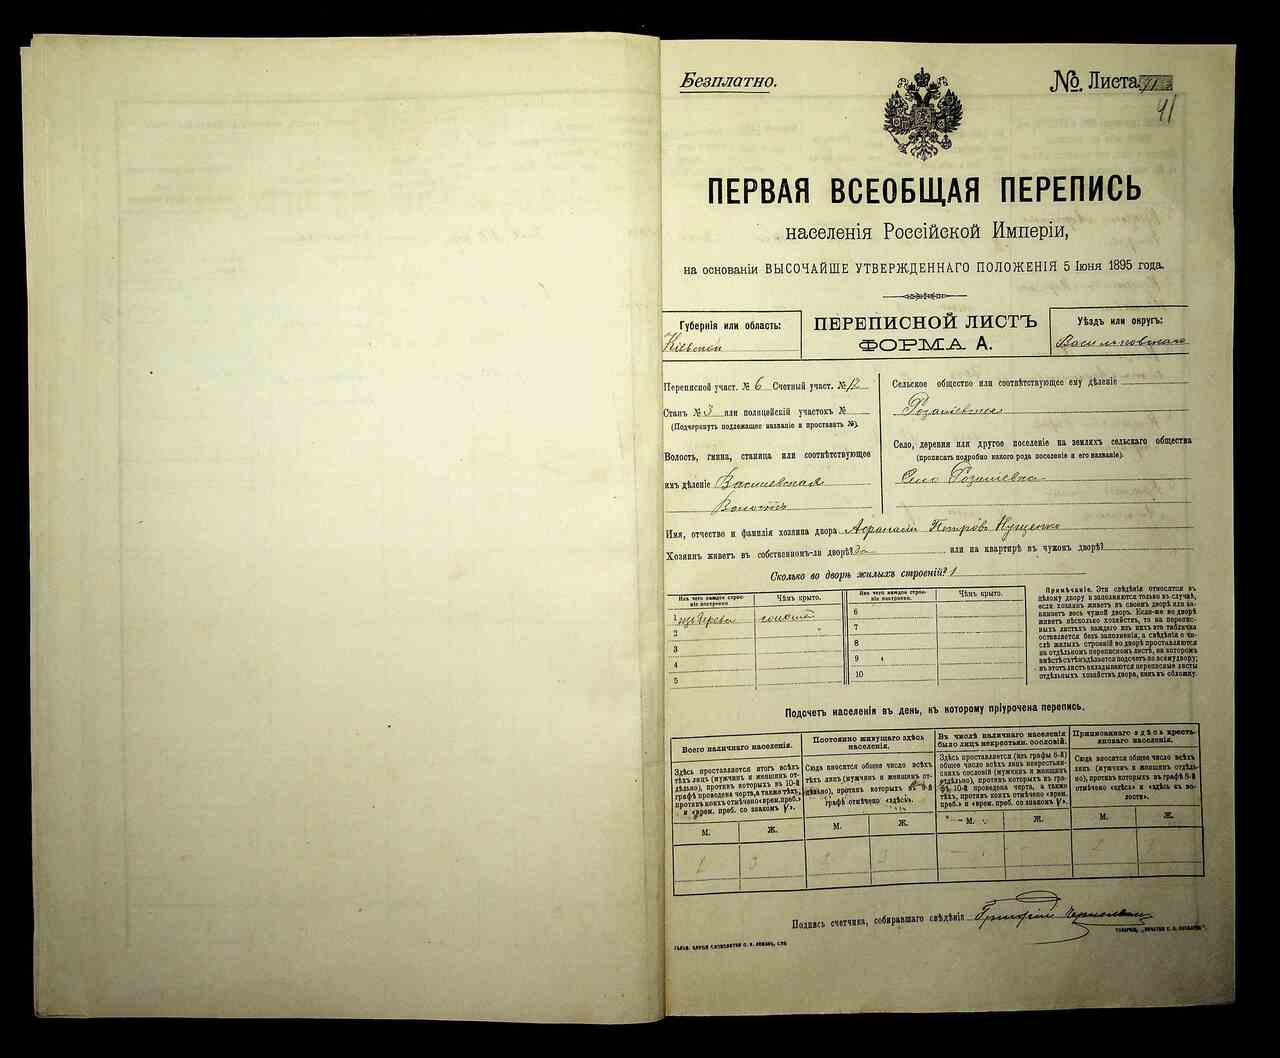 Безплатно.
№ Листа
41
ПЕРВАЯ ВСЕОБЩАЯ ПЕРЕПИСЬ
населенія Россійской Имперіи,
на основаніи ВЫСОЧАЙШЕ УТВЕРЖДЕННАГО ПОЛОЖЕНІЯ 5 Іюня 1895 года.
Губернія или область:
Кіевской
ПЕРЕПИСНОЙ ЛИСТЪ
ФОРМА А.
Уѣздъ или округъ:
Васильковскаго
Переписной участ. № 6 Счетный участ. № 12
Станъ № 3 или полицейскій участокъ №
(Подчеркнуть подлежащее названіе и проставить №).
Волость, гмина, станица или соотвѣтствующее
имъ дѣленіе
Волость
Сельское общество или соотвѣтствующее ему дѣленіе
Село, деревня или другое поселеніе на земляхъ сельскаго общества
(прописать подробно какого рода поселеніе и его названіе).
Село
Имя, отчество и фамилія хозяина двора Афанасій Петровъ
Хозяинъ живетъ въ собственномъ-ли дворѣ? да или на квартирѣ въ чужомъ дворѣ?
Сколько во дворѣ жилыхъ строеній? 1
Изъ чего каждое строеніе построено.
Чѣмъ крыто.
Изъ чего каждое строеніе построено.
Чѣмъ крыто.
1 изъ дерева соломой
2
3
4
5
6
7
8
9
10
Примѣчаніе. Эти свѣдѣнія относятся къ
цѣлому двору и заполняются только въ случаѣ,
если хозяинъ живетъ въ своемъ дворѣ или занимаетъ
весь чужой дворъ. Если-же во дворѣ
живетъ нѣсколько хозяйствъ, то на переписныхъ
листахъ каждаго изъ нихъ эта табличка
оставляется безъ заполненія, а свѣдѣнія о числѣ
жилыхъ строеній во дворѣ проставляются
на отдѣльномъ переписномъ листѣ, на которомъ
вмѣстѣ съ тѣмъ дѣлается подсчетъ по всему двору;
въ этотъ листъ вкладываются переписные листы
отдѣльныхъ хозяйствъ двора, какъ въ обложку.
Подсчетъ населенія въ день, къ которому пріурочена перепись.
Всего наличнаго населенія.
Здѣсь проставляется итогъ всѣхъ
лицъ (мужчинъ и женщинъ отдѣльно),
противъ которыхъ въ 10-й
графѣ проведена черта, а также тѣхъ,
противъ коихъ отмѣчено «врем. преб.»
и «врем. преб. со знакомъ V».
Постоянно живущаго здѣсь
населенія.
Сюда вносится общее число всѣхъ
тѣхъ лицъ (мужчинъ и женщинъ отдѣльно),
противъ которыхъ въ 9-й
графѣ отмѣчено «здѣсь».
Въ числѣ наличнаго населенія
было лицъ некрестьян. сословій.
Здѣсь проставляется (изъ графы 8-й)
общее число всѣхъ лицъ некрестьянскихъ
сословій (мужчинъ и женщинъ
отдѣльно), противъ которыхъ въ графѣ
10-й проведена черта, а также
тѣхъ, противъ коихъ отмѣчено «врем.
преб.» и «врем. преб. со знакомъ V».
Приписаннаго здѣсь крестьянскаго
населенія.
Сюда вносится общее число всѣхъ
лицъ (мужчинъ и женщинъ отдѣльно),
противъ которыхъ въ графѣ 8-й
отмѣчено «здѣсь» и «здѣсь къ волости».
М. Ж. М. Ж. М. Ж. М. Ж.
1 3
Подпись счетчика, собиравшаго свѣдѣнія Григорій